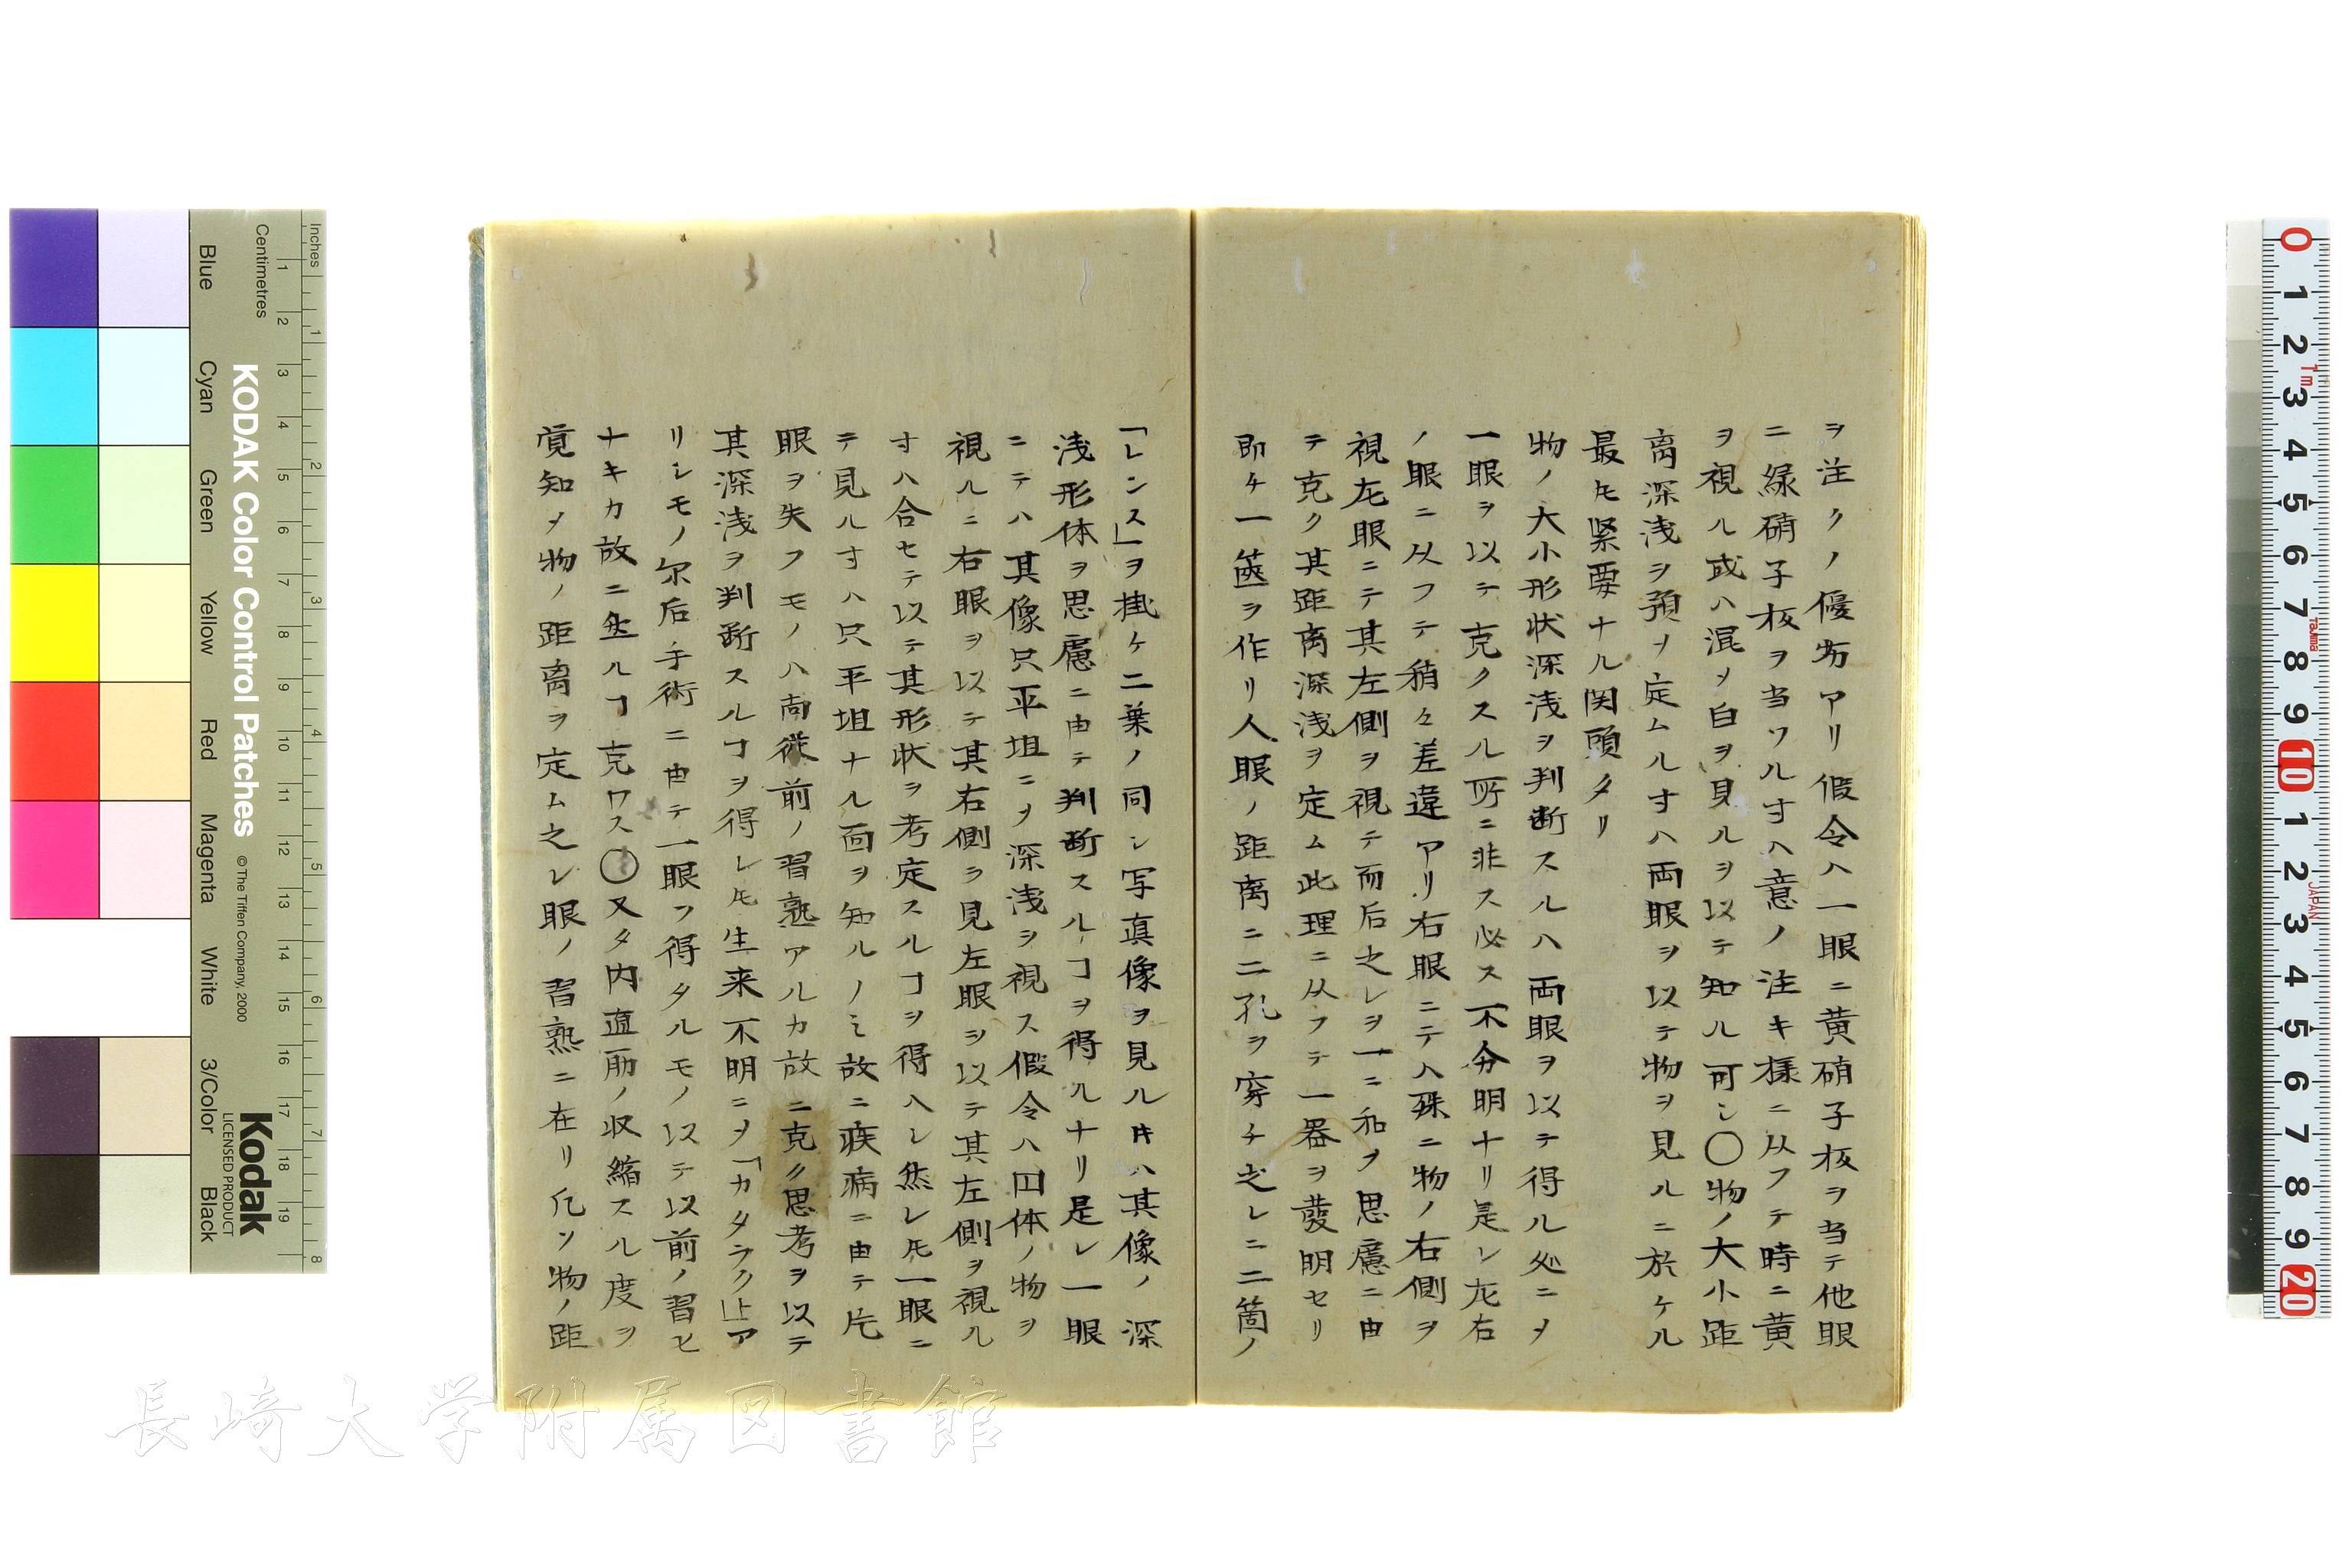 ヲ注クノ優劣アリ假令ハ一眼ニ黄硝子板ヲ当テ他眼
ニ緑硝子板ヲ当ツル寸ハ意ノ注キ様ニ从フテ時ニ黄
ヲ視ル或ハ混〆白ヲ見ルヲ以テ知ル可シ〇物ノ大小距
离深浅ヲ預〆定ムル寸ハ両眼ヲ以テ物ヲ見ルニ於ケル
最𪜈緊要ナル関頭タリ
物ノ大小形状深浅ヲ判断スルハ両眼ヲ以テ得ル処ニ〆
一眼ヲ以テ克クスル所ニ非ス必ス不分明ナリ是レ左右
ノ眼ニ从フテ稍々差違アリ右眼ニテハ殊ニ物ノ右側ヲ
視左眼ニテ其左側ヲ視テ而后之レヲ一ニ和〆思慮ニ由
テ克ク其距离深浅ヲ定ム此理ニ从フテ一器ヲ發明セリ
即チ一篋ヲ作リ人眼ノ距离ニ二孔ヲ穿チ之レニ二箇ノ
「レンス」ヲ掛ケ二葉ノ同シ写真像ヲ見ル𪜈ハ其像ノ深
浅形体ヲ思慮ニ由テ判断スルヿヲ得ルナリ是レ一眼
ニテハ其像只平坦ニ〆深浅ヲ視ス假令ハ囗体ノ物ヲ
視ルニ右眼ヲ以テ其右側ヲ見左眼ヲ以テ其左側ヲ視ル
寸ハ合セテ以テ其形状ヲ考定スルヿヲ得ヘシ然レ𪜈一眼ニ
テ見ル寸ハ只平坦ナル面ヲ知ルノミ故ニ疾病ニ由テ片
眼ヲ失フモノハ尚從前ノ習熟アルカ故ニ克ク思考ヲ以テ
其深浅ヲ判断スルヿヲ得レ𪜈生来不明ニ〆「カタラクト」ア
リシモノ尓后手術ニ由テ一眼ヲ得タルモノ以テ以前ノ習ヒ
ナキカ故ニ坐ルヿ克ワス〇又タ内直筋ノ収縮スル度ヲ
覚知〆物ノ距离ヲ定ム之レ眼ノ習熟ニ在リ凡ソ物ノ距
KODAK Color Control Patches
© The Tiffen Company, 2000
Kodak
LICENSED PRODUCT
Inches
Centimetres
Blue
Cyan
Green
Yellow
Red
Magenta
White
3/Color
Black
長崎大学附属図書館